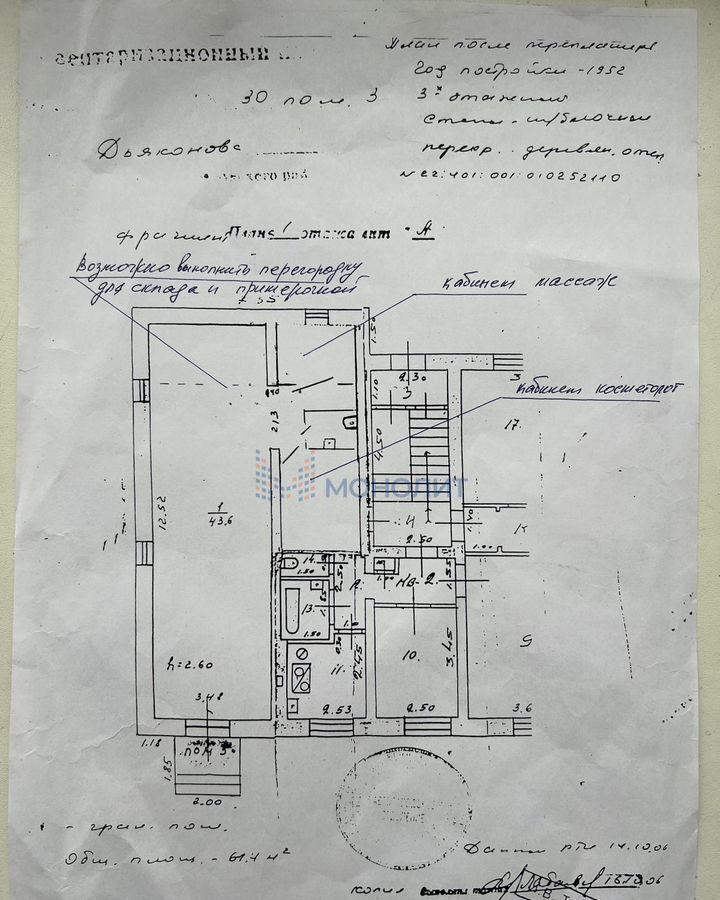 План после перепланир
Год постройки - 1952
30 пом. 3
3х этажный
Стены - ш/блочные
Дьяконова
перекр. деревян. отеп
N 22:401:001:010252110
фрагмент Плана 1 этажа лит. А
Возможно выполнить перегородку
для склада и примерочной
Кабинет массаж
7.55
1.50
2.30
3
1.10
Кабинет косметолог
.90
2.13
4.50
17.
МОНОЛИТ
1
43.6
12.52
4
1.40
2.50
1.00
14.
1.50
2.50
кв-2
1.55
13.
1.50
1.10
10.
3.45
9
h=2.60
11.
2.45
3.48
2.53
2.50
3.6
1.18
пом 3
1.85
2.00
- гран. пом.
Общ. площ. - 61.4 м²
Данные рти 14.10.06
копия